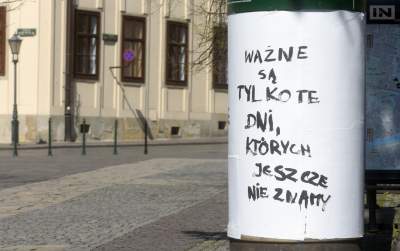 WAŻNE
SĄ
TYLKO TE
DNI,
KTÓRYCH
JESZCZE
NIE ZNAMY
IN